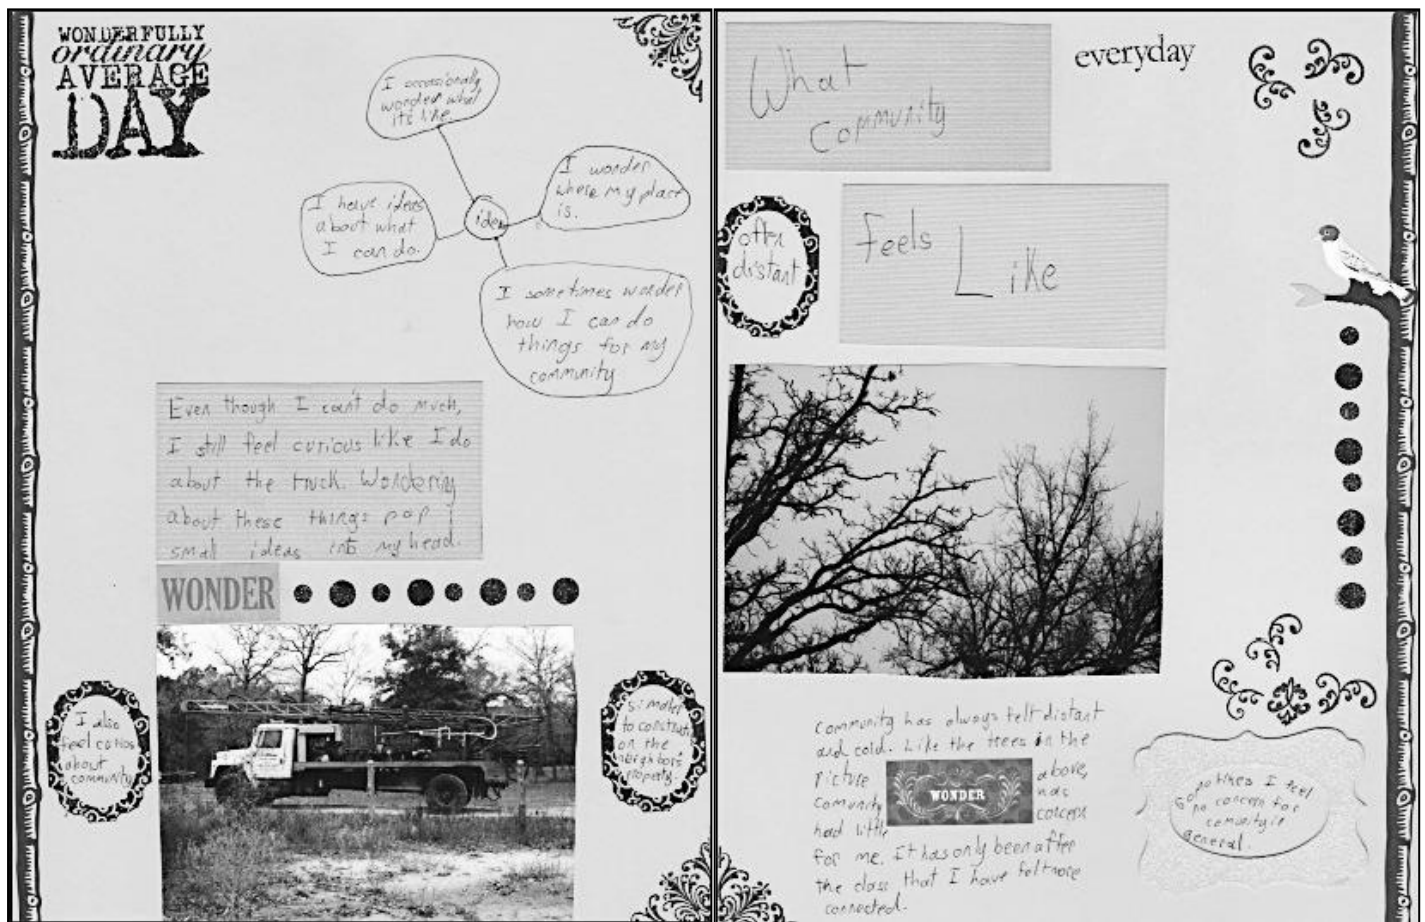 WONDERFULLY
ordinary
AVERAGE
DAY
I occasionally
wonder what
its like
I wonder
where my place
is.
I have ideas
about what
I can do.
idea
I sometimes wonder
how I can do
things for my
community
Even though I can't do much,
I still feel curious like I do
about the truck. Wondering
about these things pop
small ideas into my head.
WONDER
I also
feel
about
community
similar
to
on the
neighbors
property.
What
community
everyday
often
distant
feels
Like
community has always felt distant
and cold. Like the trees in the
picture above,
comunity has
had little concern
WONDER
for me. It has only been after
the class that I have felt more
connected.
Sometimes I feel
no concern for
comunity in
general.